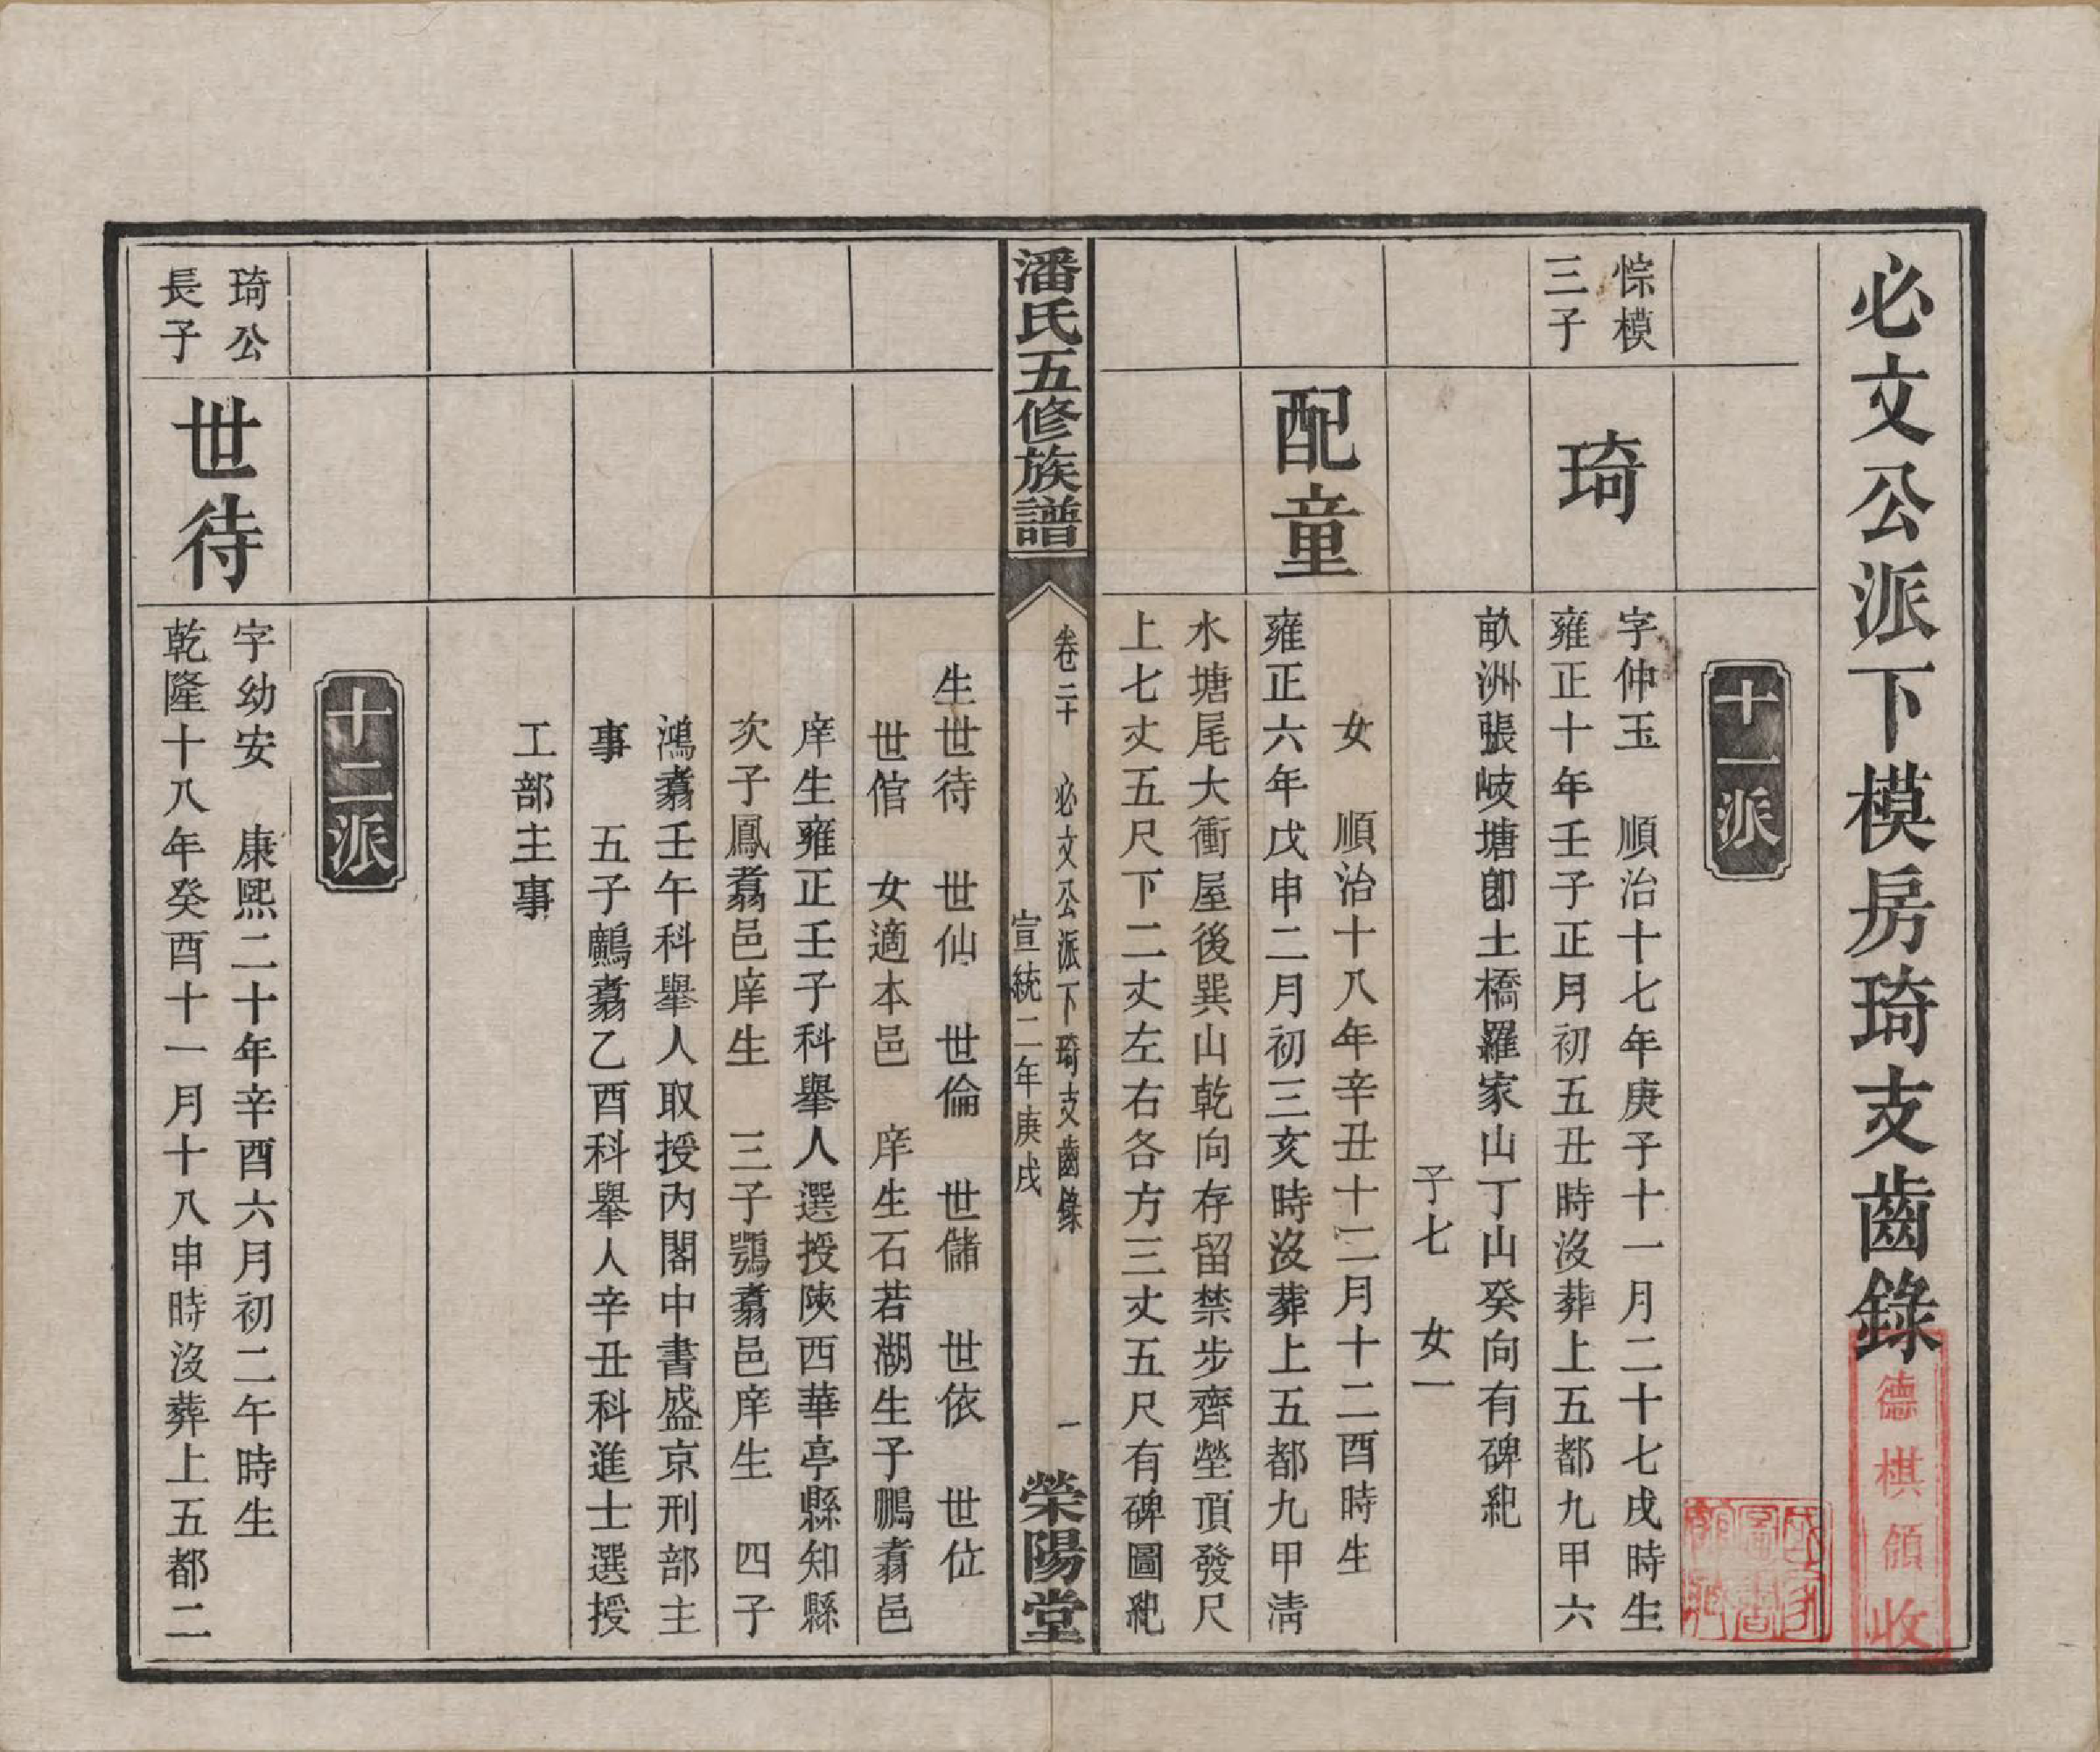 必文公派下模房琦支齒錄
德棋領收
十一派
悰模
三子
琦
字仲玉 順治十七年庚子十一月二十七戌時生
雍正十年壬子正月初五丑時沒葬上五都九甲六
畝洲張岐塘卽土橋羅家山丁山癸向有碑紀
子七 女一
配童
女 順治十八年辛丑十二月十二酉時生
雍正六年戊申二月初三亥時沒葬上五都九甲淸
水塘尾大衝屋後巽山乾向存留禁步齊塋頂發尺
上七丈五尺下二丈左右各方三丈五尺有碑圖紀
潘氏五修族譜
卷二十 必文公派下琦支齒錄 一
宣統二年庚戌
榮陽堂
生世待 世仙 世倫 世儲 世依 世位
世倌 女適本邑 庠生石若湖生子鵬翥邑
庠生雍正壬子科舉人選授陝西華亭縣知縣
次子鳳翥邑庠生 三子鶚翥邑庠生 四子
鴻翥壬午科舉人取授內閣中書盛京刑部主
事 五子鸕翥乙酉科舉人辛丑科進士選授
工部主事
十二派
琦公
長子
世待
字幼安 康熙二十年辛酉六月初二午時生
乾隆十八年癸酉十一月十八申時沒葬上五都二